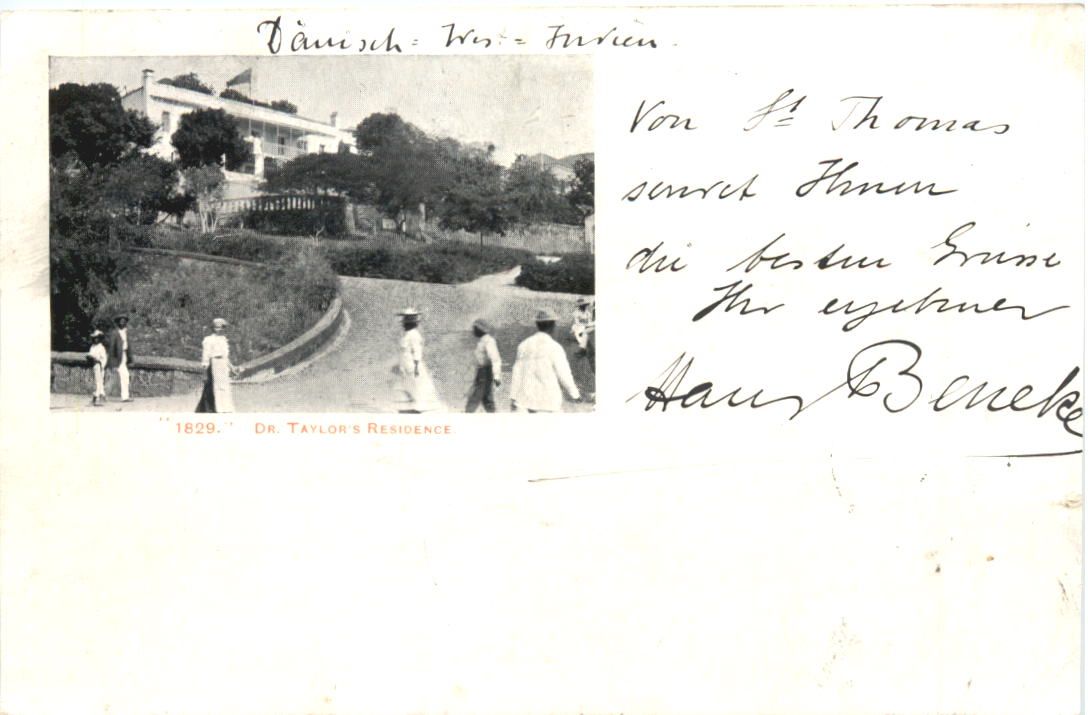 Dänisch = West = Indien.
Von St Thomas
sendet Ihnen
die besten Grüsse
Ihr ergebener
Hans Beneke
"1829." DR. TAYLOR'S RESIDENCE.